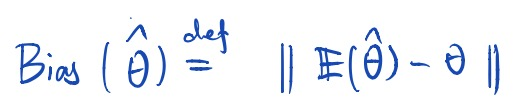 Bias ( θ̂ ) def= || 𝔼(θ̂) - θ ||